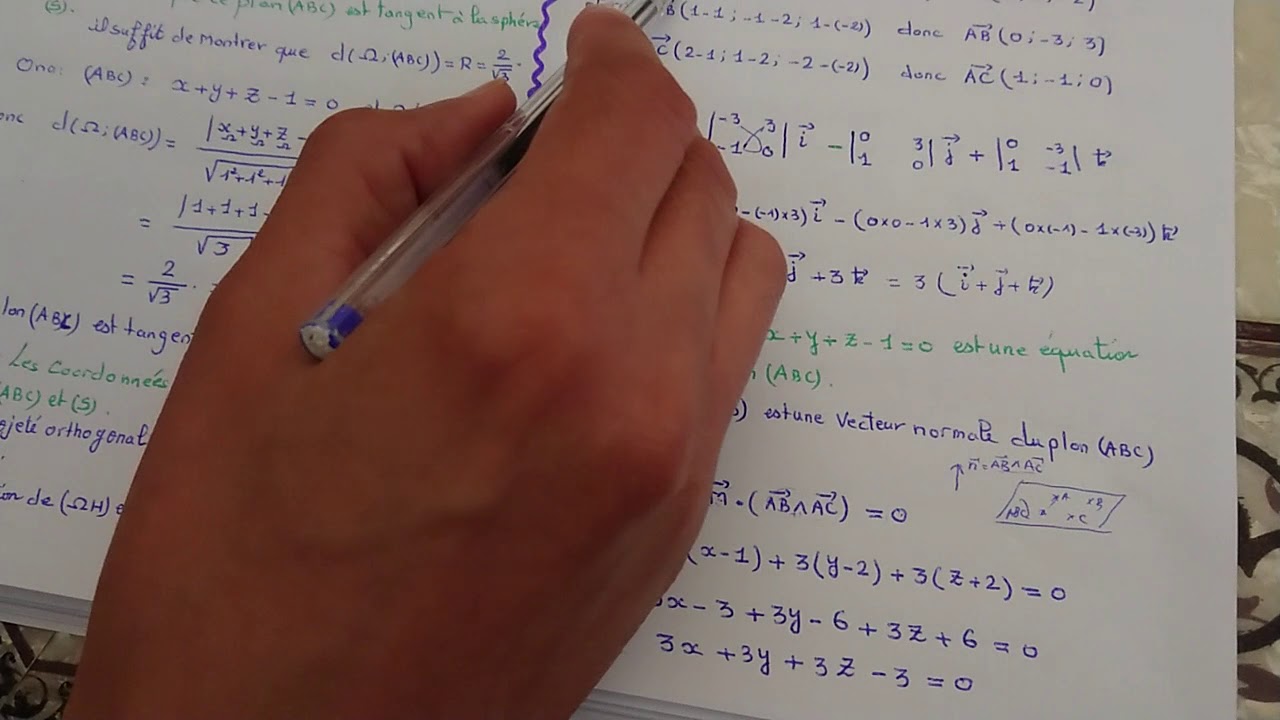 (S). plan (ABC) est tangent à la sphère
il suffit de Montrer que d(Ω;(ABC)) = R = 2/√3.
Ona: (ABC): x+y+z-1=0
d(Ω;(ABC)) = |x_Ω+y_Ω+z_Ω -
√1²+1²+1
= |1+1+1-
√3
= 2/√3.
(ABC) est tangent
Les Coordonnées
(ABC) et (S).
orthogonal
de (ΩH)
B(1-1; -1-2; 1-(-2)) donc AB⃗(0; -3; 3)
C⃗(2-1; 1-2; -2-(-2)) donc AC⃗(1; -1; 0)
|-3 3; -1 0| i⃗ - |0 3; 1 0| j⃗ + |0 -3; 1 -1| k⃗
-(-1)×3) i⃗ - (0×0-1×3) j⃗ + (0×(-1) - 1×(-3)) k⃗
j⃗ + 3k⃗ = 3(i⃗+j⃗+k⃗)
x+y+z-1=0 est une équation
(ABC).
est une Vecteur normale du plan (ABC)
n⃗=AB⃗∧AC⃗
ABC ×A ×B × ×C
M⃗·(AB⃗∧AC⃗) = 0
(x-1) + 3(y-2) + 3(z+2) = 0
x - 3 + 3y - 6 + 3z + 6 = 0
3x + 3y + 3z - 3 = 0